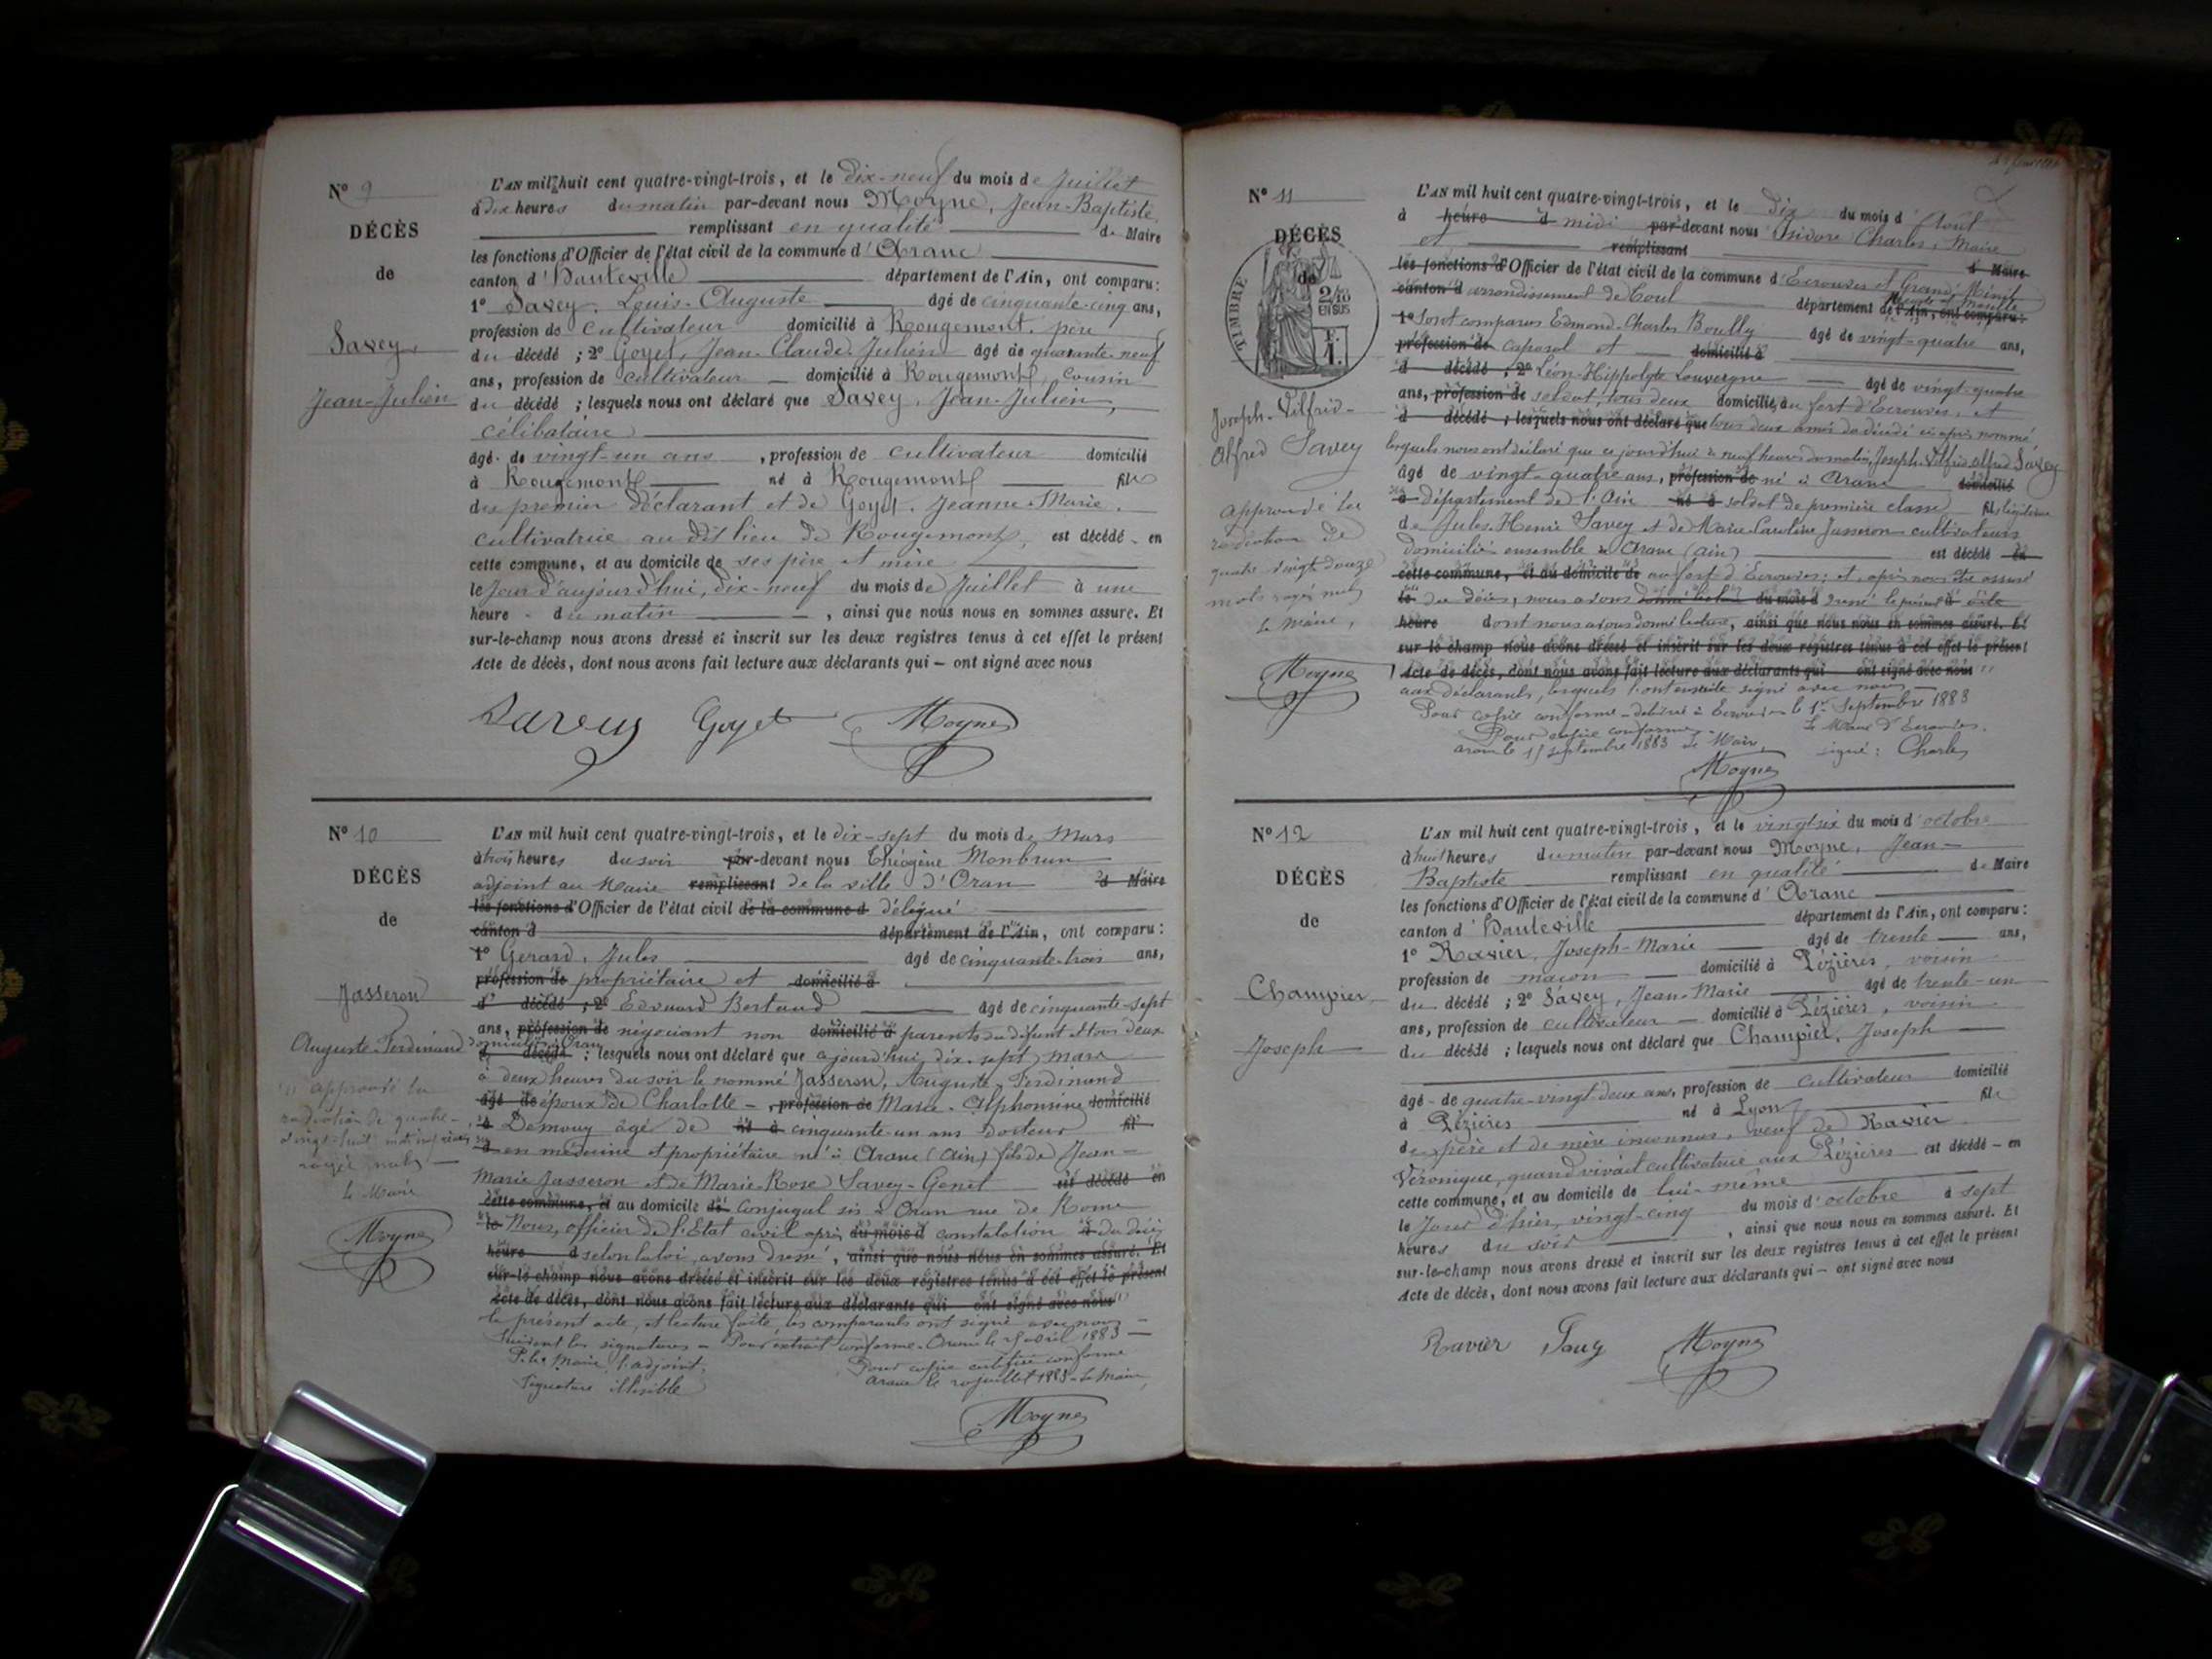 N° 9
DÉCÈS
de
Savey
Jean-Julien
L'AN mil huit cent quatre-vingt-trois, et le dix-neuf du mois de Juillet
à dix heures du matin par-devant nous Moyne, Jean-Baptiste,
remplissant en qualité de Maire
les fonctions d'Officier de l'état civil de la commune d'Aranc
canton d'Hauteville département de l'Ain, ont comparu:
1° Savey, Louis-Auguste âgé de cinquante-cinq ans,
profession de cultivateur domicilié à Rougemont, père
du décédé ; 2° Goyet, Jean-Claude-Julien âgé de quarante-neuf
ans, profession de cultivateur domicilié à Rougemont, cousin
du décédé ; lesquels nous ont déclaré que Savey, Jean-Julien,
célibataire
âgé de vingt-un ans, profession de cultivateur domicilié
à Rougemont né à Rougemont fils
du premier déclarant et de Goyet, Jeanne-Marie,
cultivatrice au dit lieu de Rougemont, est décédé en
cette commune, et au domicile de ses père et mère
le jour d'aujourd'hui, dix-neuf du mois de Juillet à une
heure du matin, ainsi que nous nous en sommes assuré. Et
sur-le-champ nous avons dressé et inscrit sur les deux registres tenus à cet effet le présent
Acte de décès, dont nous avons fait lecture aux déclarants qui – ont signé avec nous
Savey Goyet Moyne
N° 10
DÉCÈS
de
Jasseron
Auguste-Ferdinand
approuvé la
radiation de quatre-
vingt-huit mots
rayés nuls
le Maire
Moyne
L'AN mil huit cent quatre-vingt-trois, et le dix-sept du mois de Mars
à trois heures du soir par-devant nous Théogène Monbrun
adjoint au Maire remplissant de la ville d'Oran d Maire
les fonctions d'Officier de l'état civil de la commune d délégué
canton d département de l'Ain, ont comparu:
1° Gerard, Jules âgé de cinquante-trois ans,
profession de propriétaire et domicilié à
d décédé ; 2° Edouard Bertrand âgé de cinquante-sept
ans, profession de négociant non domicilié à parents du défunt et tous deux
domiciliés à Oran
d décédé ; lesquels nous ont déclaré que aujourd'hui, dix-sept mars
à deux heures du soir le nommé Jasseron, Auguste-Ferdinand
âgé de époux de Charlotte –, profession de Marie-Alphonsine domicilié
à Demouy âgé de né à cinquante-un ans Docteur fil
d en médecine et propriétaire né à Aranc (Ain) fils de Jean-
Marie Jasseron et de Marie-Rose Savey-Genet est décédé en
cette commune, et au domicile de conjugal sis à Oran rue de Rome
le Nous, officier de l'Etat civil après du mois d constatation à du décès
heure d selon la loi, avons dressé, ainsi que nous nous en sommes assuré. Et
sur-le-champ nous avons dressé et inscrit sur les deux registres tenus à cet effet le présent
Acte de décès, dont nous avons fait lecture aux déclarants qui ont signé avec nous
le présent acte, et lecture faite, les comparants ont signé avec nous
Suivent les signatures – Pour extrait conforme – Oran le avril 1883
P. le Maire l'adjoint,
Signature illisible
Pour copie certifiée conforme
Aranc le 20 juillet 1883 – Le Maire,
Moyne
N° 11
DÉCÈS
de
TIMBRE
2/10
EN SUS
F.
1.
Joseph-Vilfrid-
Alfred Savey
approuvé la
radiation de
quatre vingt-douze
mots rayés nuls
Le Maire,
Moyne
L'AN mil huit cent quatre-vingt-trois, et le Dix du mois d'Août
à heure d midi par-devant nous Isidore Charles, Maire
et remplissant
les fonctions d'Officier de l'état civil de la commune d'Ecrouves et Grand Ménil d Maire
canton d arrondissement de Toul département de l'Ain, ont comparu: Meurthe et Moselle
1° Sont comparus Edmond-Charles Boully âgé de vingt-quatre ans,
profession de caporal et domicilié à
d décédé ; 2° Léon-Hippolyte Louvergne âgé de vingt-quatre
ans, profession de soldat, tous deux domiciliés au fort d'Ecrouves, et
d décédé ; lesquels nous ont déclaré que tous deux amis du décédé ci-après nommé,
lesquels nous ont déclaré que ce jourd'hui à neuf heures du matin, Joseph-Vilfrid-Alfred Savey
âgé de vingt-quatre ans, profession de né à Aranc domicilié
à département de l'Ain né à soldat de première classe fils légitime
de Jules-Henri Savey et de Marie-Caroline Jasseron cultivateurs
domiciliés ensemble à Aranc (Ain) est décédé en
cette commune, et au domicile de au fort d'Ecrouves; et, après nous être assuré
le du décès, nous avons du mois d dressé le présent à acte
heure dont nous avons donné lecture, ainsi que nous nous en sommes assuré. Et
sur-le-champ nous avons dressé et inscrit sur les deux registres tenus à cet effet le présent
Acte de décès, dont nous avons fait lecture aux déclarants qui ont signé avec nous
aux déclarants, lesquels l'ont ensuite signé avec nous
Pour copie conforme – délivré à Ecrouves le 1er Septembre 1883
Le Maire d'Ecrouves,
signé : Charles
Pour copie conforme
Aranc le 15 septembre 1883 Le Maire
Moyne
N° 12
DÉCÈS
de
Champier,
Joseph
L'AN mil huit cent quatre-vingt-trois, et le vingt six du mois d'octobre
à huit heures du matin par-devant nous Moyne, Jean-
Baptiste remplissant en qualité de Maire
les fonctions d'Officier de l'état civil de la commune d'Aranc
canton d'Hauteville département de l'Ain, ont comparu:
1° Ravier, Joseph-Marie âgé de trente ans,
profession de maçon domicilié à Pézières, voisin
du décédé ; 2° Savey, Jean-Marie âgé de trente-un
ans, profession de cultivateur domicilié à Pézières, voisin
du décédé ; lesquels nous ont déclaré que Champier, Joseph
âgé de quatre-vingt-deux ans, profession de cultivateur domicilié
à Pézières né à Lyon fils
de père et de mère inconnus, veuf de Ravier
Véronique, quand vivait cultivatrice aux Pézières est décédé – en
cette commune, et au domicile de lui-même
le jour d'hier, vingt-cinq du mois d'octobre à sept
heures du soir, ainsi que nous nous en sommes assuré. Et
sur-le-champ nous avons dressé et inscrit sur les deux registres tenus à cet effet le présent
Acte de décès, dont nous avons fait lecture aux déclarants qui – ont signé avec nous
Ravier Savey Moyne